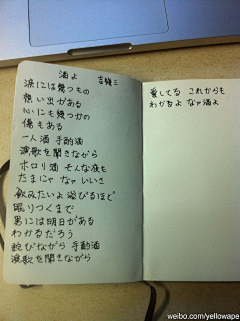 酒よ 吉幾三
涙には幾つもの
想い出がある
心にも幾つかの
傷もある
一人酒 手酌酒
演歌を聞きながら
ホロリ酒 そんな夜も
たまにゃ なァ いいさ
飲みたいよ 浴びるほど
眠りつくまで
男には明日がある
わかるだろう
詫びながら 手酌酒
演歌を聞きながら
愛してる これからも
わかるよ なァ 酒よ
weibo.com/yellowape